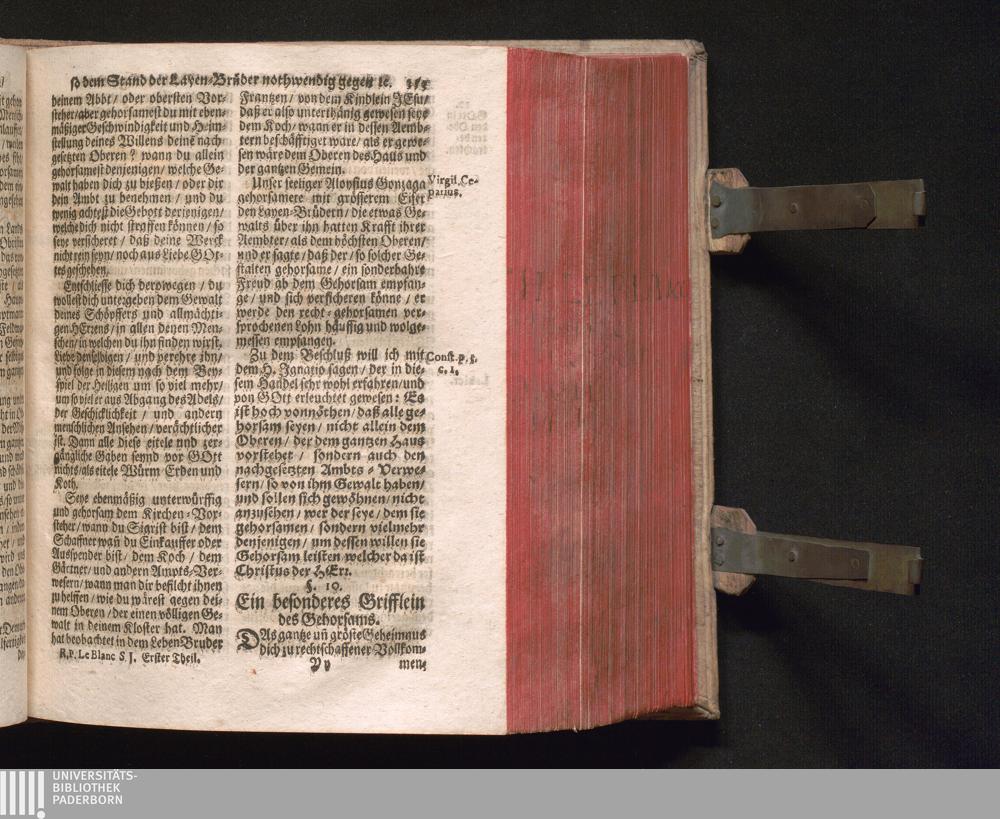 so dem Stand der Layen-Brüder nothwendig gegen ꝛc. 315
deinem Abbt / oder obersten Vor-
steher / aber gehorsamest du mit eben-
mäßiger Geschwindigkeit und Heim-
stellung deines Willens deinē nach
gesetzten Oberen? wann du allein
gehorsamest denjenigen / welche Ge-
walt haben dich zu biessen / oder dir
dein Ambt zu benehmen / und du
wenig achtest die Gebott derjenigen /
welche dich nicht straffen können / so
seye versicheret / daß deine Werck
nicht reyn seyn / noch aus Liebe GOt-
tes geschehen.
Entschliesse dich derowegen / du
wollest dich untergeben dem Gewalt
deines Schöpffers und allmächti-
gen HErrens / in allen denen Men-
schen / in welchen du ihn finden wirst.
Liebe denselbigen / und verehre ihn /
und folge in diesem nach dem Bey-
spiel der Heiligen um so viel mehr /
um so viel er aus Abgang des Adels /
der Geschicklichkeit / und andern
menschlichen Ansehen / verächtlicher
ist. Dann alle diese eitele und zer-
gängliche Gaben seynd vor GOtt
nichts / als eitele Würm Erden und
Koth.
Seye ebenmäßig unterwürffig
und gehorsam dem Kirchen-Vor-
steher / wann du Sigrist bist / dem
Schaffner wañ du Einkauffer oder
Ausspender bist / dem Koch / dem
Gärtner / und andern Ampts-Ver-
wesern / wann man dir befilcht ihnen
zu helffen / wie du wärest gegen dei-
nem Oberen / der einen völligen Ge-
walt in deinem Kloster hat. Man
hat beobachtet in dem Leben Bruder
R. P. Le Blanc S J. Erster Theil.
Frantzen / von dem Kindlein JEsu /
daß er also unterthänig gewesen seye
dem Koch / wann er in dessen Aemb-
tern beschäfftiget ware / als er gewe-
sen wäre dem Oberen des Haus und
der gantzen Gemein.
Unser seeliger Aloysius Gonzaga
gehorsamete mit grösserem Eifer
den Layen-Brüdern / die etwas Ge-
walts über ihn hatten Krafft ihrer
Aembter / als dem höchsten Oberen /
und er sagte / daß der / so solcher Ge-
stalten gehorsame / ein sonderbahre
Freud ab dem Gehorsam empfan-
ge / und sich versicheren könne / er
werde den recht-gehorsamen ver-
sprochenen Lohn häuffig und wolge-
messen empfangen.
Virgil. Ce-
parius.
Zu dem Beschluß will ich mit
dem H. Ignatio sagen / der in die-
sem Handel sehr wohl erfahren / und
von GOtt erleuchtet gewesen: Es
ist hoch vonnöthen / daß alle ge-
horsam seyen / nicht allein dem
Oberen / der dem gantzen Haus
vorstehet / sondern auch den
nachgesetzten Ambts-Verwe-
sern / so von ihm Gewalt haben /
und sollen sich gewöhnen / nicht
anzusehen / wer der seye / dem sie
gehorsamen / sondern vielmehr
denjenigen / um dessen willen sie
Gehorsam leisten welcher da ist
Christus der HErr.
Const. p. 3.
c. 1.
§. 10.
Ein besonderes Grifflein
des Gehorsams.
DAs gantze uñ gröste Geheimnus
dich zu rechtschaffener Vollkom-
men-
UNIVERSITÄTS-
BIBLIOTHEK
PADERBORN